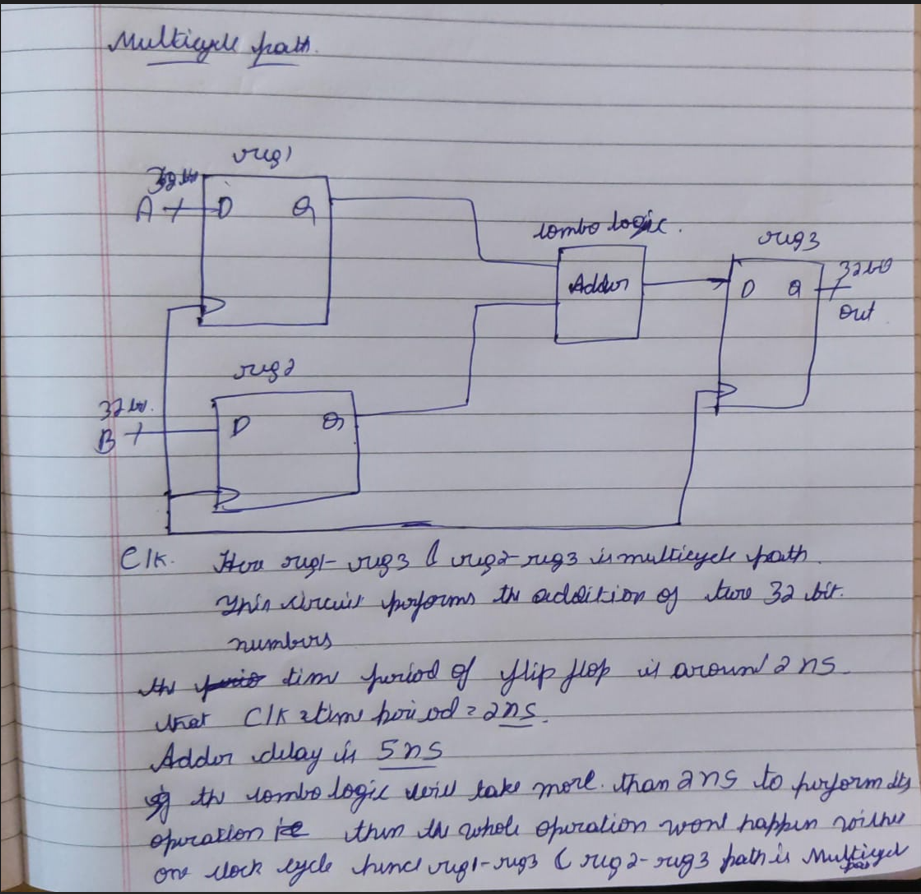 Multicycle path.
reg1
32 bit
A D Q
combo logic.
reg3
Adder
D Q
32 bit
out
reg2
32 bit.
B D Q
Clk. Here reg1-reg3 & reg2-reg3 is multicycle path.
This circuit performs the addition of two 32 bit.
numbers
the time period of flip flop is around 2 ns
that Clk time period = 2ns.
Adder delay is 5ns
If the combo logic will take more than 2ns to perform its
operation then the whole operation wont happen within
one clock cycle hence reg1-reg3 & reg2-reg3 path is Multicycle
path